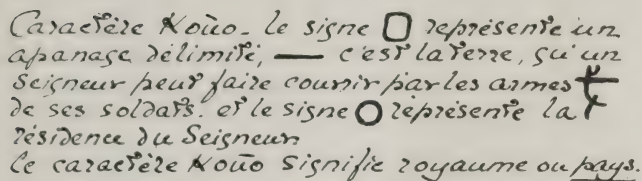 Caractère Kouo. le signe représente un
apanage délimité, — c'est la terre, qu'un
Seigneur peut faire couvrir par les armes
de ses soldats. et le signe représente la
résidence du Seigneur
le caractère Kouo signifie royaume ou pays.